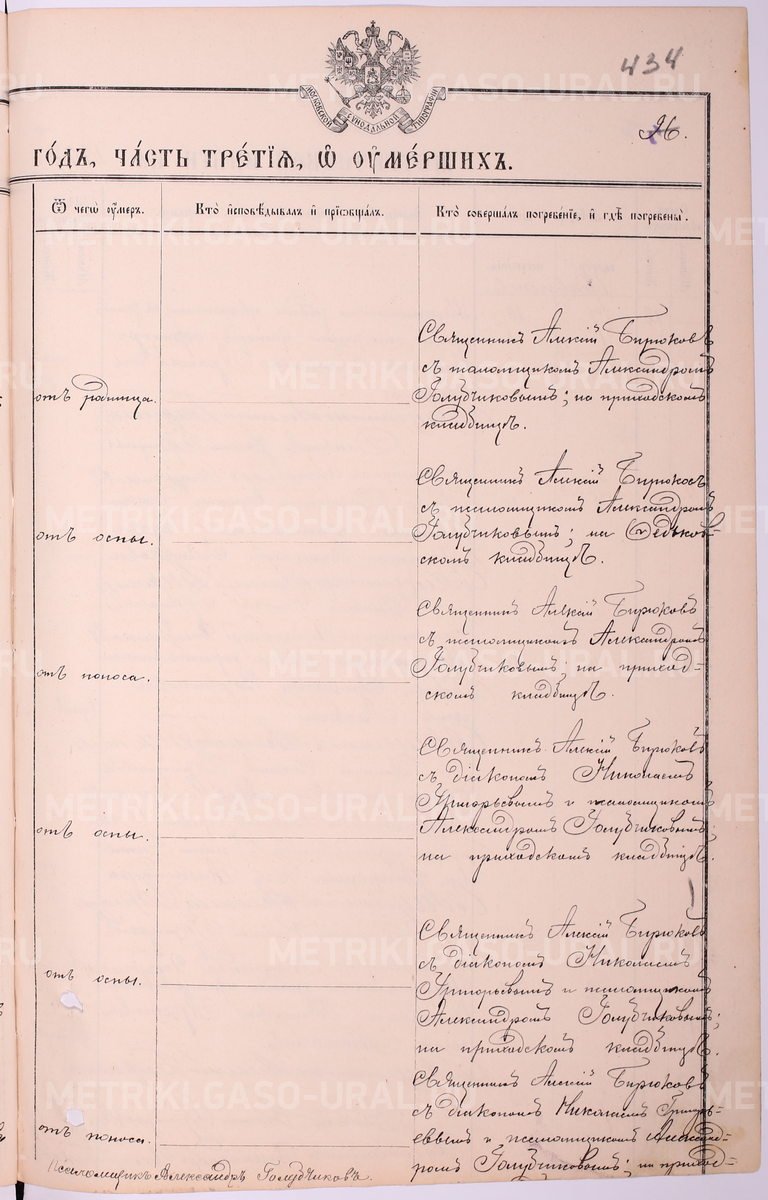 434
26.
МОСКОВСКОЙ СѴНОДАЛЬНОЙ ТИПОГРАФІИ
го́дъ, ча́сть тре́тїѧ, ѡ҆ ᲂу҆ме́ршихъ.
Ѿ чегѡ̀ ᲂу҆́меръ.
Кто̀ и҆сповѣ́дывалъ и҆ прїѡбща́лъ.
Кто̀ соверша́лъ погребе́нїе, и҆ гдѣ̀ погребены̀.
отъ родимца.
Священникъ Алексій Бирюковъ
съ псаломщикомъ Александромъ
Голубчиковымъ; на приходскомъ
кладбищѣ.
отъ оспы.
Священникъ Алексій Бирюковъ
съ псаломщикомъ Александромъ
Голубчиковымъ; на Федьков-
скомъ кладбищѣ.
отъ поноса.
Священникъ Алексій Бирюковъ
съ псаломщикомъ Александромъ
Голубчиковымъ; на приход-
скомъ кладбищѣ.
отъ оспы.
Священникъ Алексій Бирюковъ
съ діакономъ Николаемъ
Григорьевымъ и псаломщикомъ
Александромъ Голубчиковымъ;
на приходскомъ кладбищѣ.
отъ оспы.
Священникъ Алексій Бирюковъ
съ діакономъ Николаемъ
Григорьевымъ и псаломщикомъ
Александромъ Голубчиковымъ;
на приходскомъ кладбищѣ.
отъ поноса.
Священникъ Алексій Бирюковъ
съ діакономъ Николаемъ Григорь-
евымъ и псаломщикомъ Александ-
ромъ Голубчиковымъ; на приход-
Псаломщикъ Александръ Голубчиковъ.
METRIKI.GASO-URAL.RU